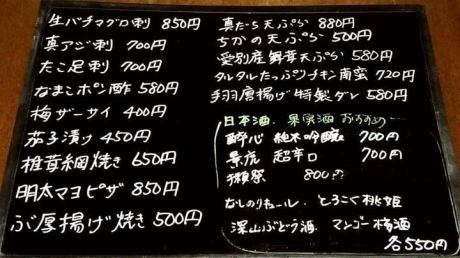 生バチマグロ刺 850円
真アジ刺 700円
たこ足刺 700円
なまこポン酢 580円
梅ザーサイ 400円
茄子漬け 450円
椎茸網焼き 650円
明太マヨピザ 850円
ぶ厚揚げ焼き 500円
真だち天ぷら 880円
ちかの天ぷら 500円
愛別産舞茸天ぷら 580円
タルタルたっぷりチキン南蛮 720円
手羽唐揚げ特製ダレ 580円
日本酒、果実酒おすすめ…
酔心 純米吟醸 700円
景虎 超辛口 700円
獺祭 800円
なしのリキュール、とろこく桃姫
深山ぶどう酒、マンゴー梅酒
各550円